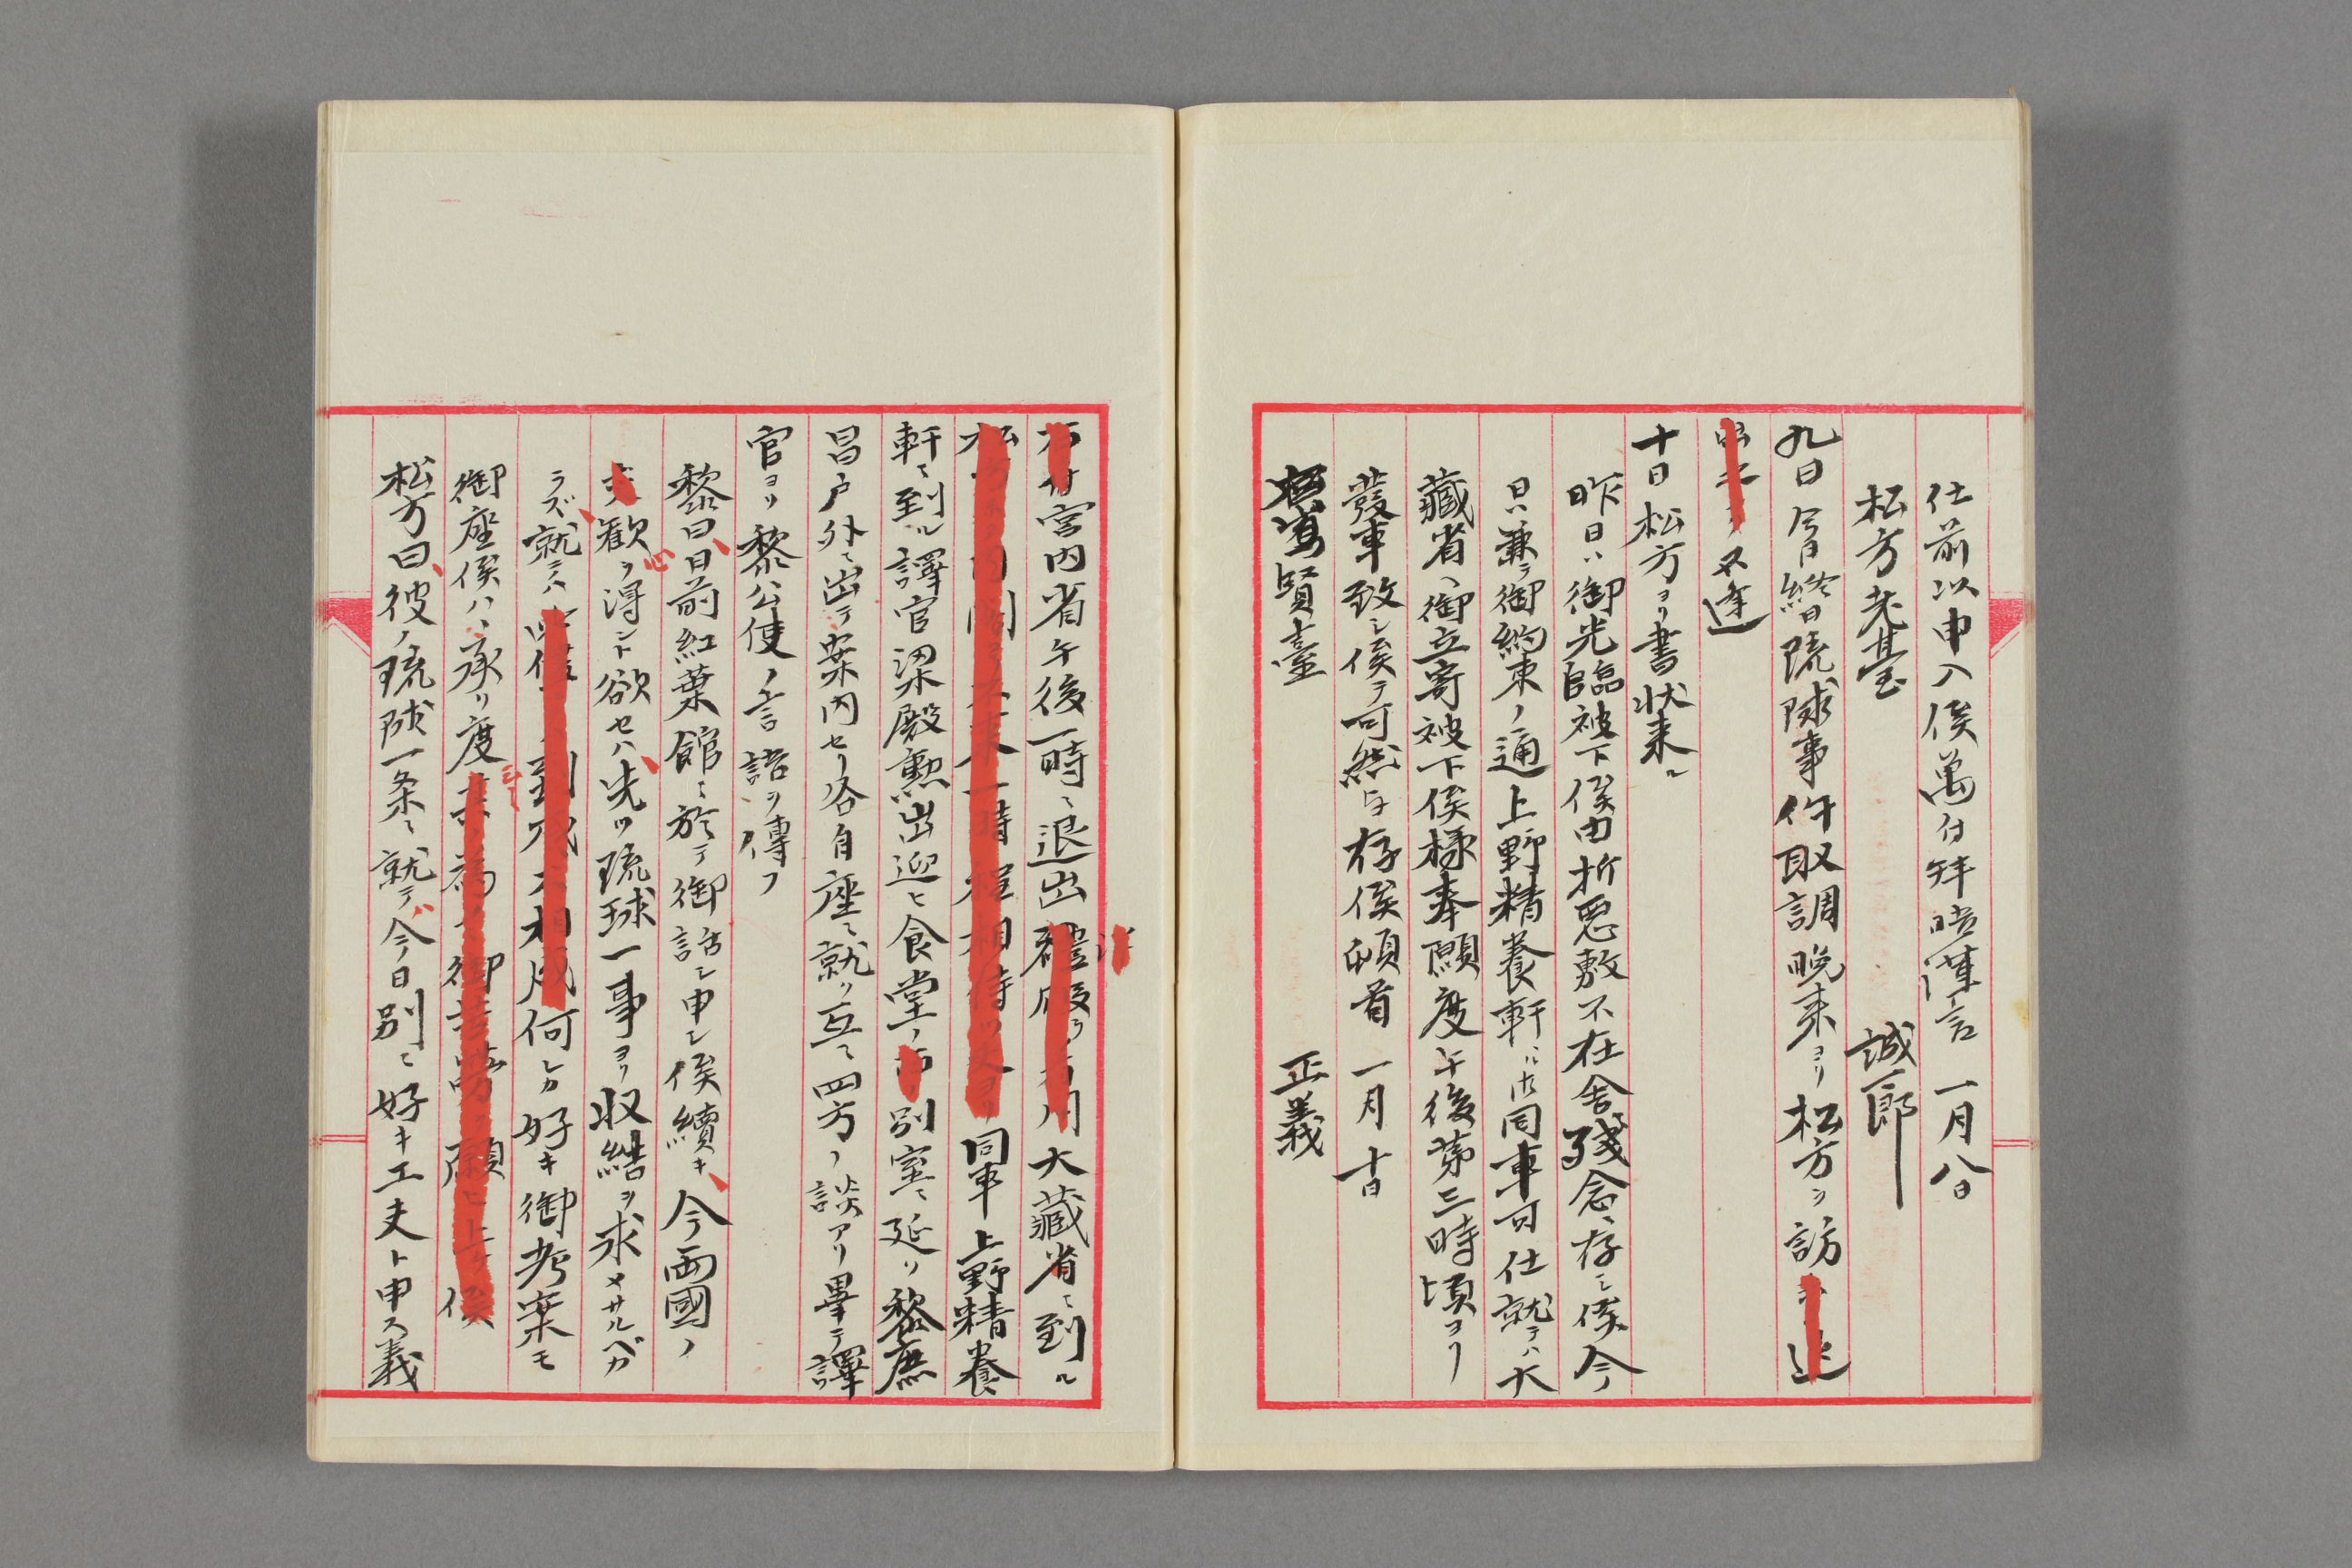 仕前以申入候萬付拝晤謹言 一月八日
松方老基 誠一郎
九日 今日終日琉球事件取調晩来ヨリ松方ヲ訪
不逢
十日 松方ヨリ書状来ル
昨日ハ御光臨被下候由折悪敷不在舎残念ニ存シ候今
日ハ兼テ御約束ノ通上野精養軒ニハ同車可仕就テハ大
藏省ヘ御立寄被下候様奉願度午後第三時頃ヨリ
發車致シ候テ可然ト存候頓首 一月十日
賢臺 正義
宮内省午後一時ニ退出 大藏省ニ到ル
同車上野精養
軒ニ到ル譯官梁殿勲出迎ヒ食堂ノ 別室ニ延リ黎庶
昌戸外ニ出テ案内セリ各自座ニ就リ互ニ四方ノ談アリ畢テ譯
官ヨリ黎公使ノ言語ヲ傳フ
黎曰日前紅葉館ニ於テ御話シ申シ候續キ今両國ノ
歓心ヲ得ント欲セハ先ツ琉球一事ヨリ収結ヲ求メサルベカ
ラズ就テハ 何レカ好キ御考案モ
御座候ハヽ承リ度
松方曰彼ノ琉球一条ニ就テ今日別ニ好キ工夫ト申ス義